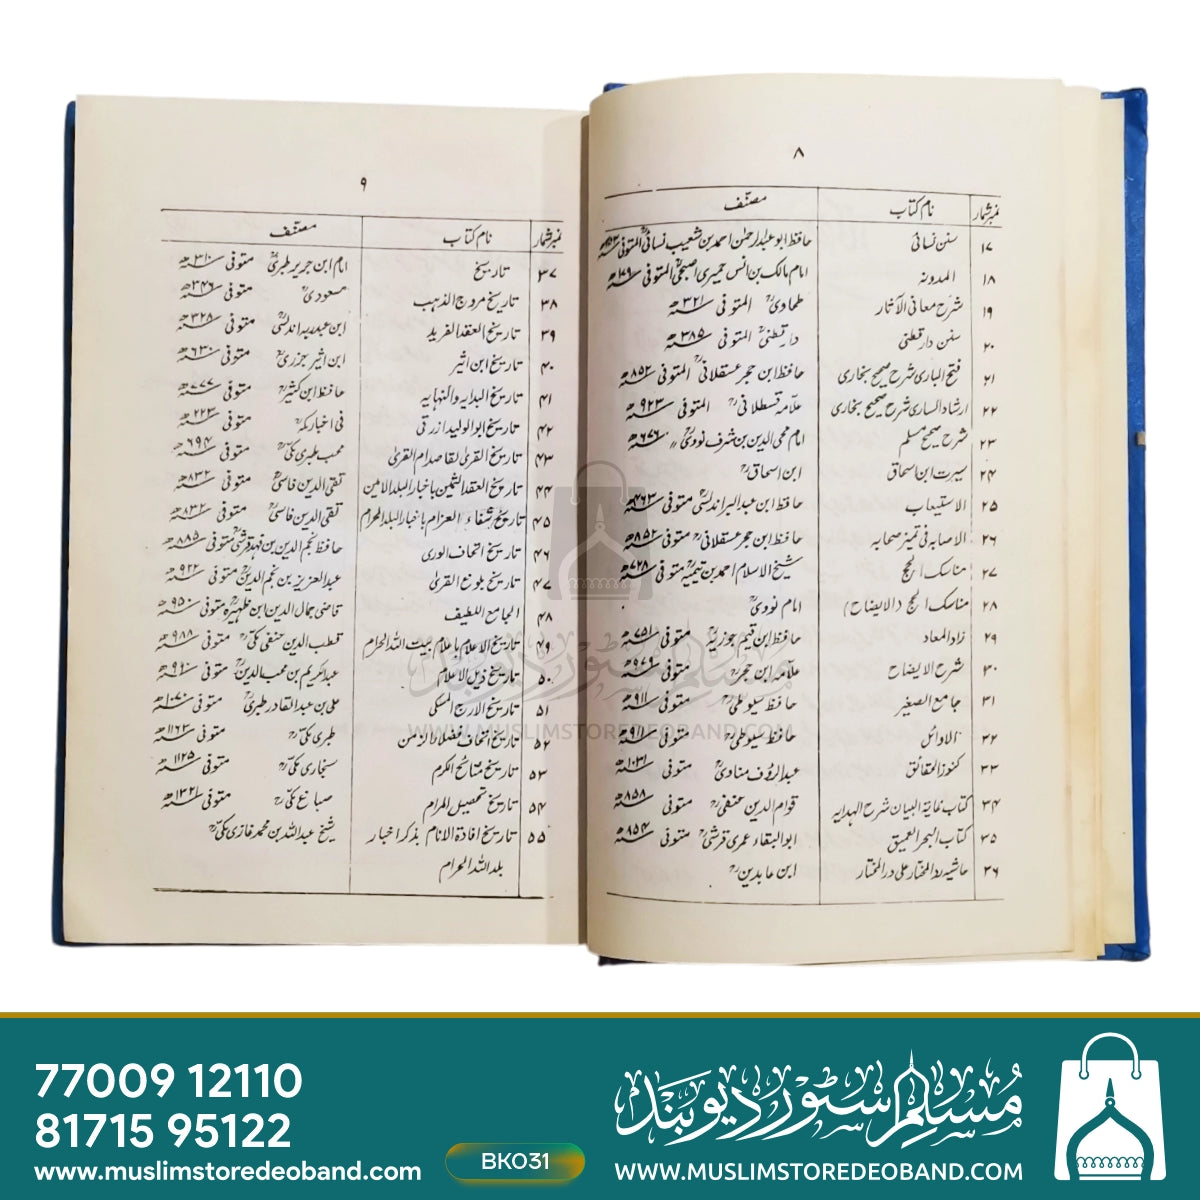 ۸
نمبر شمار نام کتاب مصنّف
۱۷ سنن نسائی حافظ ابو عبدالرحمٰن احمد بن شعیب نسائیؒ المتوفی ۳۰۳ھ
۱۸ المدونہ امام مالک بن انس حمیری اصبحیؒ المتوفی ۱۷۹ھ
۱۹ شرح معانی الآثار طحاویؒ المتوفی ۳۲۱ھ
۲۰ سنن دار قطنی دار قطنیؒ المتوفی ۳۸۵ھ
۲۱ فتح الباری شرح صحیح بخاری حافظ ابن حجر عسقلانیؒ المتوفی ۸۵۲ھ
۲۲ ارشاد الساری شرح صحیح بخاری علامہ قسطلانیؒ المتوفی ۹۲۳ھ
۲۳ شرح صحیح مسلم امام محی الدین بن شرف نوویؒ ״ ۶۷۶ھ
۲۴ سیرت ابن اسحاق ابن اسحاقؒ
۲۵ الاستیعاب حافظ ابن عبدالبر اندلسیؒ متوفی ۴۶۳ھ
۲۶ الاصابہ فی تمیز صحابہ حافظ ابن حجر عسقلانیؒ متوفی ۸۵۲ھ
۲۷ مناسک الحج شیخ الاسلام احمد بن تیمیہؒ متوفی ۷۲۸ھ
۲۸ مناسک الحج (الایضاح) امام نوویؒ
۲۹ زاد المعاد حافظ ابن قیم جوزیہؒ متوفی ۷۵۱ھ
۳۰ شرح الایضاح علامہ ابن حجرؒ متوفی ۹۷۶ھ
۳۱ جامع الصغیر حافظ سیوطیؒ متوفی ۹۱۱ھ
۳۲ الاوائل حافظ سیوطیؒ متوفی ۹۱۱ھ
۳۳ کنوز الحقائق عبدالرؤف مناویؒ متوفی ۱۰۳۱ھ
۳۴ کتاب غایۃ البیان شرح الہدایہ قوام الدین حنفیؒ متوفی ۸۵۸ھ
۳۵ کتاب البحر العمیق ابوالبقاء عمری قرشیؒ متوفی ۸۵۴ھ
۳۶ حاشیہ ردالمختار علی در المختار ابن عابدینؒ
۹
نمبر شمار نام کتاب مصنّف
۳۷ تاریخ امام ابن جریر طبریؒ متوفی ۳۱۰ھ
۳۸ تاریخ مروج الذہب مسعودیؒ متوفی ۳۴۶ھ
۳۹ تاریخ العقد الفرید ابن عبدربہ اندلسیؒ متوفی ۳۲۸ھ
۴۰ تاریخ ابن اثیر ابن اثیر جزریؒ متوفی ۶۳۰ھ
۴۱ تاریخ البدایہ والنہایہ حافظ ابن کثیرؒ متوفی ۷۷۴ھ
۴۲ تاریخ ابوالولید ازرقی فی اخبار مکہ متوفی ۲۲۳ھ
۴۳ تاریخ القریٰ لقاصد ام القریٰ محب طبری مکیؒ متوفی ۶۹۴ھ
۴۴ تاریخ العقد الثمین باخبار البلد الامین تقی الدین فاسیؒ متوفی ۸۳۲ھ
۴۵ تاریخ شفاء العزام باخبار البلد الحرام تقی الدین فاسیؒ متوفی ۸۳۲ھ
۴۶ تاریخ اتحاف الوری حافظ نجم الدین بن فہد قرشیؒ متوفی ۸۸۵ھ
۴۷ تاریخ بلوغ القریٰ عبدالعزیز بن نجم الدینؒ متوفی ۹۲۲ھ
۴۸ الجامع اللطیف قاضی جمال الدین ابن ظہیرہؒ متوفی ۹۵۰ھ
۴۹ تاریخ الاعلام باعلام بیت اللہ الحرام قطب الدین حنفی مکیؒ متوفی ۹۸۸ھ
۵۰ تاریخ ذیل الاعلام عبدالکریم بن محب الدینؒ متوفی
۵۱ تاریخ الارج المسکی علی بن عبدالقادر طبریؒ متوفی ۱۰۷۰ھ
۵۲ تاریخ اتحاف فضلاء الزمن طبری مکیؒ متوفی ۱۱۶۳ھ
۵۳ تاریخ منائح الکرم سنجاری مکیؒ متوفی ۱۱۲۵ھ
۵۴ تاریخ تحصیل المرام صباغ مکیؒ متوفی ۱۳۲۱ھ
۵۵ تاریخ افادۃ الانام بذکر اخبار شیخ عبداللہ بن محمد غازی مکیؒ
بلد اللہ الحرام
مسلم سٹور دیوبند
WWW.MUSLIMSTOREDEOBAND.COM
77009 12110
81715 95122
www.muslimstoredeoband.com
BK031
مسلم سٹور دیوبند
WWW.MUSLIMSTOREDEOBAND.COM